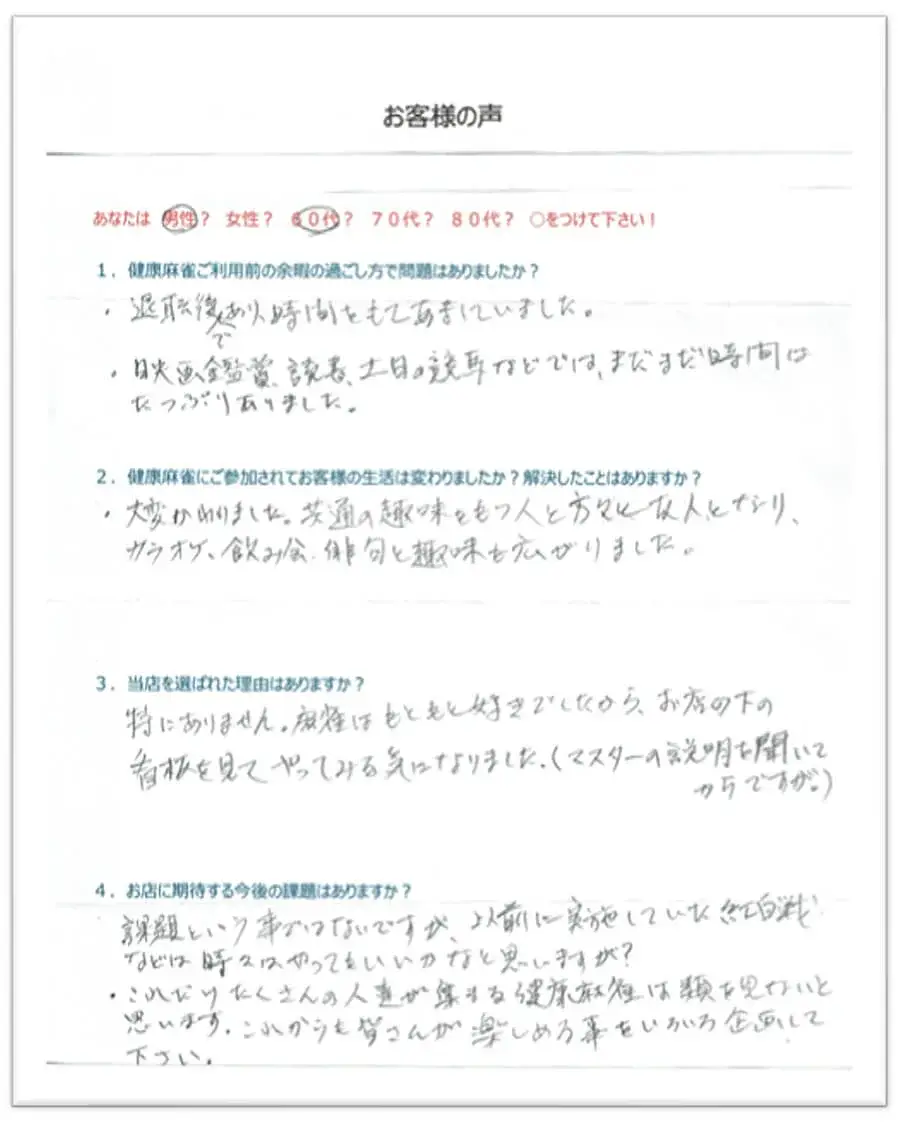 お客様の声
あなたは 男性? 女性? 60代? 70代? 80代? ○をつけて下さい!
1. 健康麻雀ご利用前の余暇の過ごし方で問題はありましたか?
・退職後であり、時間をもてあましていました。
・映画鑑賞、読書、土日の競馬などでは、まだまだ時間は
たっぷりありました。
2. 健康麻雀にご参加されてお客様の生活は変わりましたか?解決したことはありますか?
・大変かわりました。共通の趣味をもつ人と方々と友人となり、
カラオケ、飲み会、俳句と趣味も広がりました。
3. 当店を選ばれた理由はありますか?
特にありません。麻雀はもともと好きでしたから、お店の下の
看板を見てやってみる気になりました。(マスターの説明を聞いて
からですが。)
4. お店に期待する今後の課題はありますか?
課題という事ではないですが、以前に実施していた紅白戦
などは時々はやってもいいかなと思いますが?
・これだけたくさんの人達が集まる健康麻雀は類を見ないと
思います。これからも皆さんが楽しめる事をいろいろ企画して
下さい。